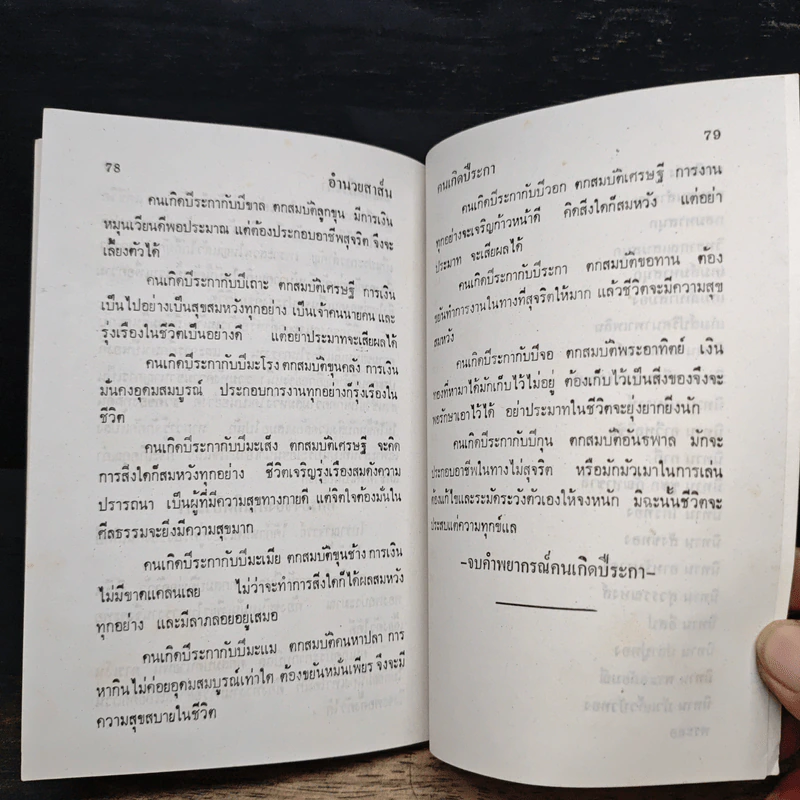 78
อำนวยสาส์น
คนเกิดปีระกากับปีขาล ตกสมบัติลูกขุน มีการเงิน
หมุนเวียนดีพอประมาณ แต่ต้องประกอบอาชีพสุจริต จึงจะ
เลี้ยงตัวได้
คนเกิดปีระกากับปีเถาะ ตกสมบัติเศรษฐี การเงิน
เป็นไปอย่างเป็นสุขสมหวังทุกอย่าง เป็นเจ้าคนนายคน และ
รุ่งเรืองในชีวิตเป็นอย่างดี แต่อย่าประมาทจะเสียผลได้
คนเกิดปีระกากับปีมะโรง ตกสมบัติขุนคลัง การเงิน
มั่นคงอุดมสมบูรณ์ ประกอบการงานทุกอย่างก็รุ่งเรืองใน
ชีวิต
คนเกิดปีระกากับปีมะเส็ง ตกสมบัติเศรษฐี จะคิด
การสิ่งใดก็สมหวังทุกอย่าง ชีวิตเจริญรุ่งเรืองสมดังความ
ปรารถนา เป็นผู้ที่มีความสุขทางกายดี แต่จิตใจต้องมั่นใน
ศีลธรรมจะยิ่งมีความสุขมาก
คนเกิดปีระกากับปีมะเมีย ตกสมบัติขุนช้าง การเงิน
ไม่มีขาดแคลนเลย ไม่ว่าจะทำการสิ่งใดก็ได้ผลสมหวัง
ทุกอย่าง และมีลาภลอยอยู่เสมอ
คนเกิดปีระกากับปีมะแม ตกสมบัติคนหาปลา การ
หากินไม่ค่อยอุดมสมบูรณ์เท่าใด ต้องขยันหมั่นเพียร จึงจะมี
ความสุขสบายในชีวิต
79
คนเกิดปีระกา
คนเกิดปีระกากับปีวอก ตกสมบัติเศรษฐี การงาน
ทุกอย่างจะเจริญก้าวหน้าดี คิดสิ่งใดก็สมหวัง แต่อย่า
ประมาท จะเสียผลได้
คนเกิดปีระกากับปีระกา ตกสมบัติขอทาน ต้อง
ขยันทำการงานในทางที่สุจริตให้มาก แล้วชีวิตจะมีความสุข
สมหวัง
คนเกิดปีระกากับปีจอ ตกสมบัติพระอาทิตย์ เงิน
ทองที่หามาได้มักเก็บไว้ไม่อยู่ ต้องเก็บไว้เป็นสิ่งของจึงจะ
พอรักษาเอาไว้ได้ อย่าประมาทในชีวิตจะยุ่งยากยิ่งนัก
คนเกิดปีระกากับปีกุน ตกสมบัติอันธพาล มักจะ
ประกอบอาชีพในทางไม่สุจริต หรือมักมัวเมาในการเล่น
ต้องแก้ไขและระมัดระวังตัวเองให้จงหนัก มิฉะนั้นชีวิตจะ
ประสบแต่ความทุกข์แล
–จบคำพยากรณ์คนเกิดปีระกา–